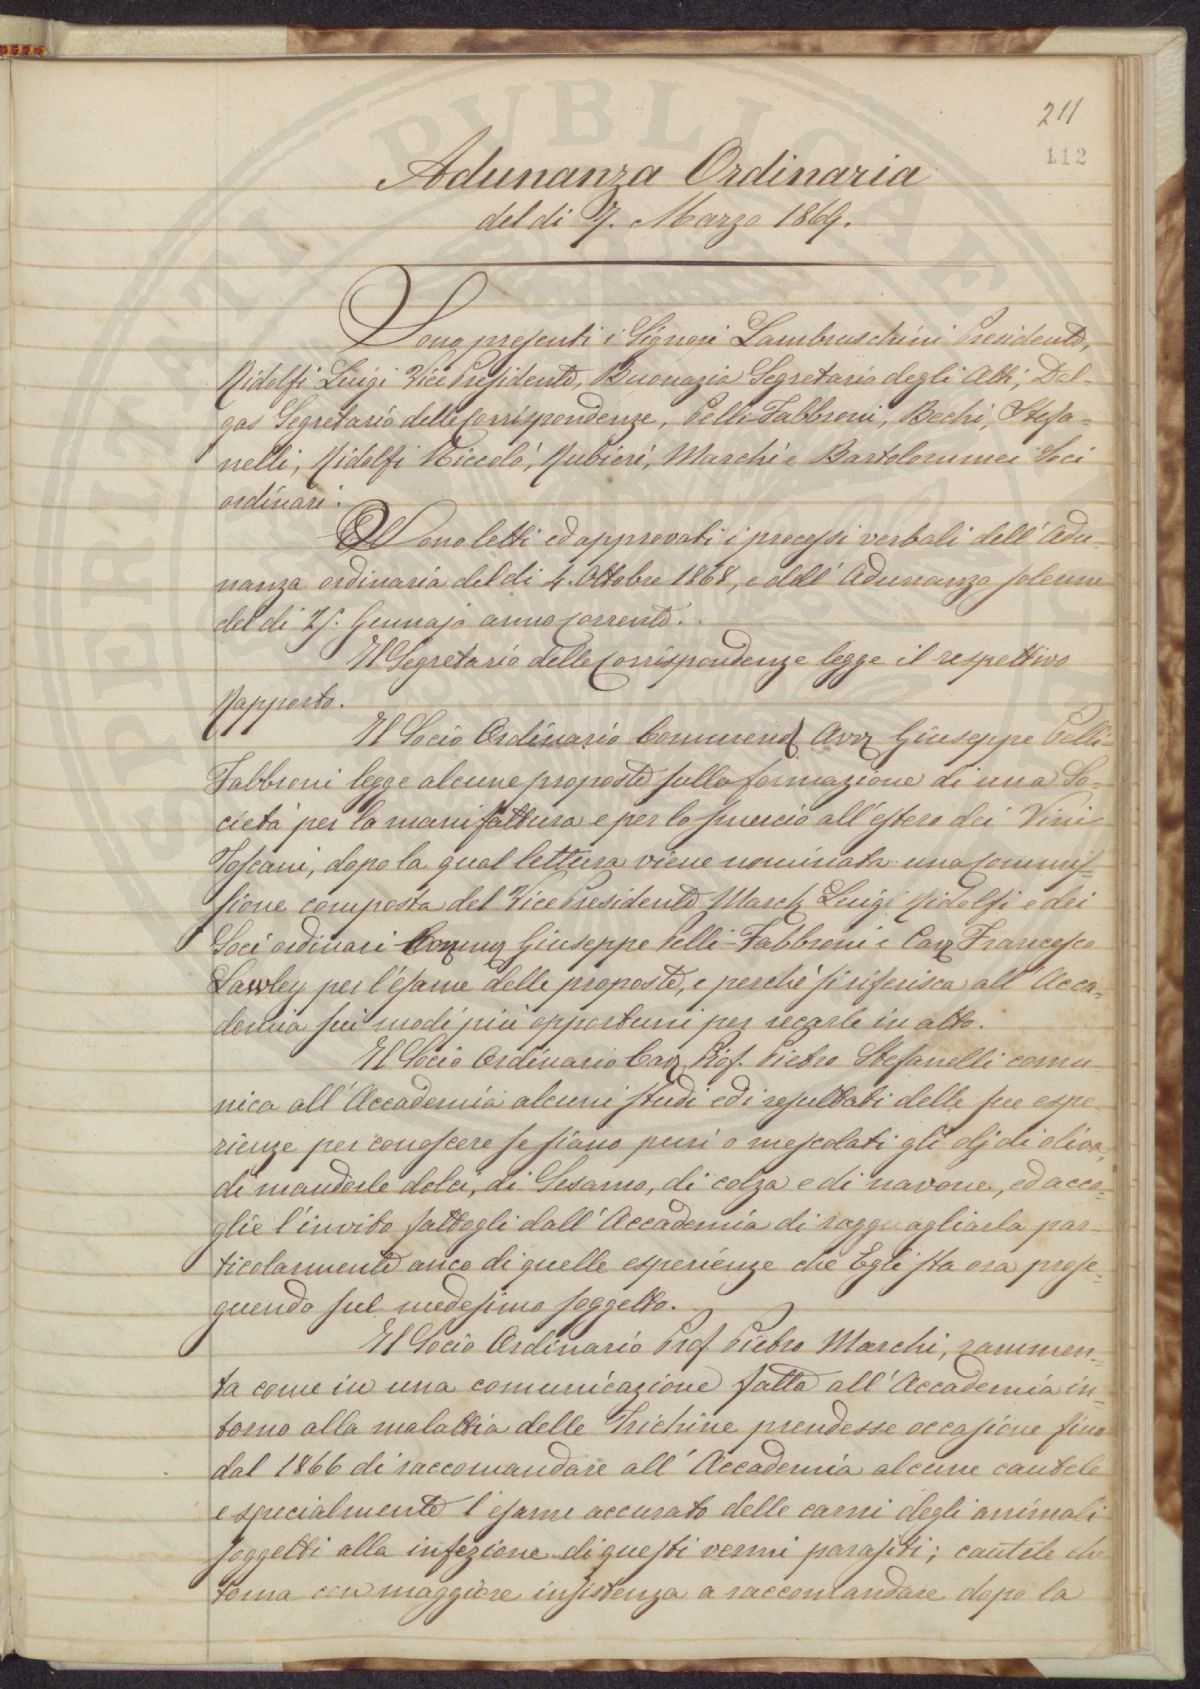 211
112
Adunanza Ordinaria
del di 7. Marzo 1869.
Sono presenti i Signori Lambruschini Presidente,
Ridolfi Luigi Vice Presidente, Buonazia Segretario degli Atti, Dal-
gas Segretario delle Corrispondenze, Pelli-Fabbroni, Bechi, Stefa-
nelli, Ridolfi Niccolò, Rubieri, Marchi e Bartolommei Soci
ordinari.
Sono letti ed approvati i processi verbali dell'Adu-
nanza ordinaria del di 4. Ottobre 1868, e dell'Adunanza solenne
del di Gennajo anno corrente.
Il Segretario delle Corrispondenze legge il respettivo
Rapporto.
Il Socio Ordinario Commend Avv Giuseppe Pelli-
Fabbroni legge alcune proposte sulla formazione di una So-
cietà per la manifattura e per lo smercio all'estero dei Vini
Toscani, dopo la qual lettura viene nominata una Commis-
sione composta del Vice Presidente March Luigi Ridolfi e dei
Soci ordinari Comm Giuseppe Pelli-Fabbroni e Cav Francesco
Lawley per l'esame delle proposte, e perchè si riferisca all'Acca-
demia sui modi più opportuni per recarle in atto.
Il Socio Ordinario Cav Prof. Pietro Stefanelli comu-
nica all'Accademia alcuni studi ed i resultati delle sue espe-
rienze per conoscere se siano puri o mescolati gli olj di oliva,
di mandorle dolci, di Sesamo, di colza e di navone, ed acco-
glie l'invito fattogli dall'Accademia di ragguagliarla par-
ticolarmente anco di quelle esperienze che Egli sta ora prose-
guendo sul medesimo soggetto.
Il Socio Ordinario Prof Pietro Marchi, rammen-
ta come in una comunicazione fatta all'Accademia in-
torno alla malattia delle Trichine prendesse occasione fino
dal 1866 di raccomandare all'Accademia alcune cautele
e specialmente l'esame accurato delle carni degli animali
soggetti alla infezione di questi vermi parasiti; cautele che
torna con maggiore insistenza a raccomandare dopo la